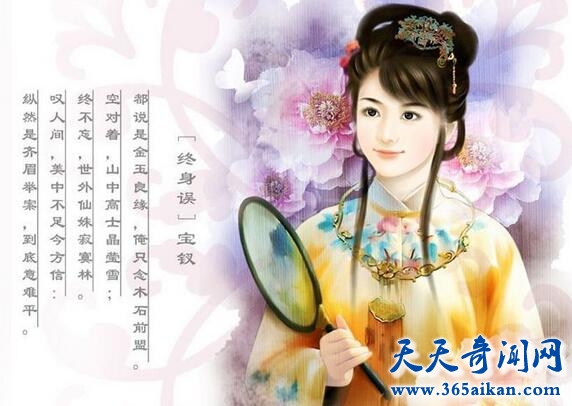 ［终身误］宝钗
都说是金玉良缘，俺只念木石前盟。
空对着，山中高士晶莹雪；
终不忘，世外仙姝寂寞林。
叹人间，美中不足今方信：
纵然是齐眉举案，到底意难平。
天天奇闻网
www.365aikan.com